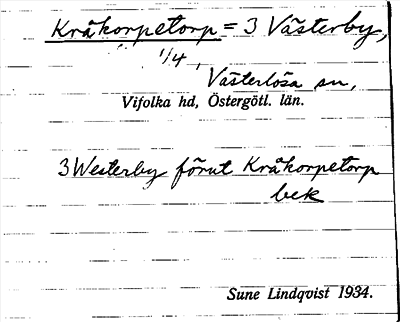 Kråkorpetorp = 3 Västerby,
1/4,
Västerlösa sn,
Vifolka hd, Östergötl. län.
3 Westerby förut Kråkorpetorp
bek
Sune Lindqvist 1934.